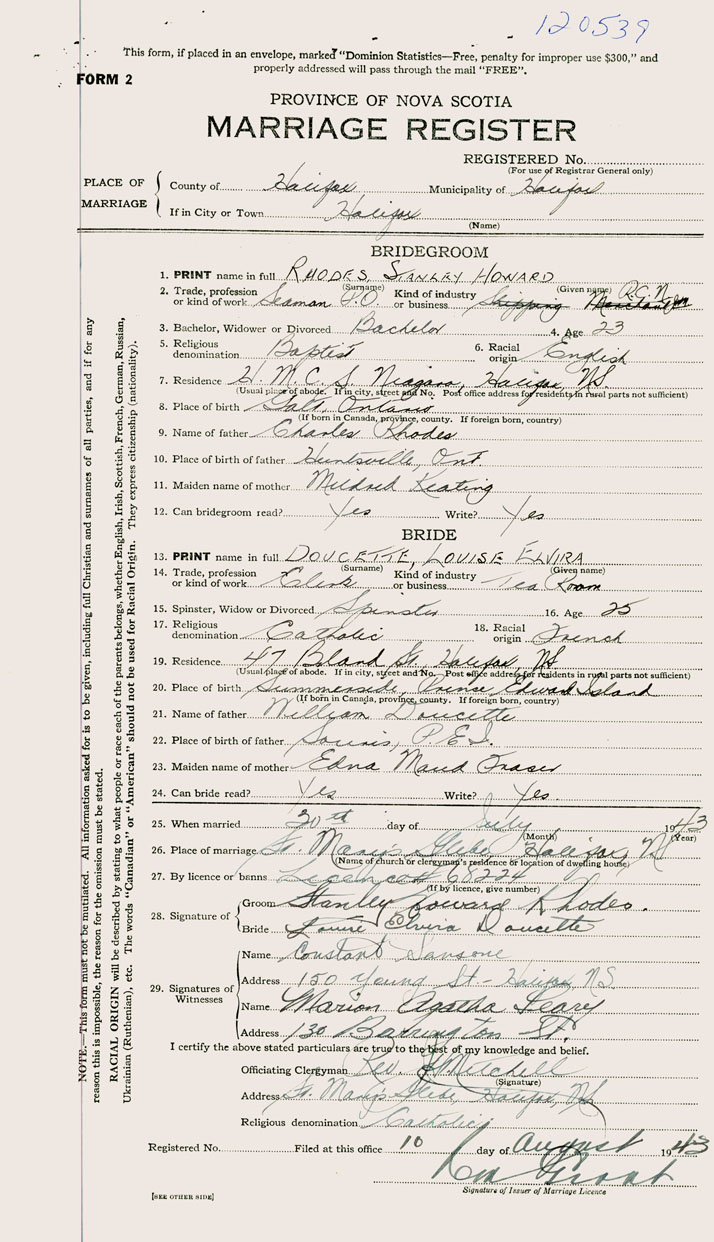 120539
This form, if placed in an envelope, marked "Dominion Statistics—Free, penalty for improper use $300," and
properly addressed will pass through the mail "FREE".
FORM 2
PROVINCE OF NOVA SCOTIA
MARRIAGE REGISTER
REGISTERED No.
(For use of Registrar General only)
PLACE OF MARRIAGE
County of Halifax Municipality of Halifax
If in City or Town Halifax
(Name)
BRIDEGROOM
1. PRINT name in full RHODES, STANLEY HOWARD
(Surname) (Given name)
2. Trade, profession or kind of work Seaman P.O. Kind of industry or business Shipping
3. Bachelor, Widower or Divorced Bachelor 4. Age 23
5. Religious denomination Baptist 6. Racial origin English
7. Residence H.M.C.S. Niagara, Halifax, NS.
(Usual place of abode. If in city, street and No. Post office address for residents in rural parts not sufficient)
8. Place of birth Galt, Ontario
(If born in Canada, province, county. If foreign born, country)
9. Name of father Charles Rhodes
10. Place of birth of father Huntsville, Ont.
11. Maiden name of mother Mildred Keating
12. Can bridegroom read? Yes Write? Yes
BRIDE
13. PRINT name in full DOUCETTE, LOUISE ELVIRA
(Surname) (Given name)
14. Trade, profession or kind of work Clerk Kind of industry or business Tea Room
15. Spinster, Widow or Divorced Spinster 16. Age 25
17. Religious denomination Catholic 18. Racial origin French
19. Residence 47 Bland St, Halifax, NS
(Usual place of abode. If in city, street and No. Post office address for residents in rural parts not sufficient)
20. Place of birth Summerside, Prince Edward Island
(If born in Canada, province, county. If foreign born, country)
21. Name of father William Doucette
22. Place of birth of father Souris, P.E.I.
23. Maiden name of mother Edna Maud Fraser
24. Can bride read? Yes Write? Yes.
25. When married 30th day of July 1943
(Month) (Year)
26. Place of marriage St. Mary's Glebe, Halifax, N
(Name of church or clergyman's residence or location of dwelling house)
27. By licence or banns Licence 68224
(If by licence, give number)
28. Signature of
Groom Stanley Howard Rhodes.
Bride Louise Elvira Doucette
29. Signatures of Witnesses
Name Constant Sansone
Address 150 Young St - Halifax, NS
Name Marion Agatha Leary
Address 130 Barrington St.
I certify the above stated particulars are true to the best of my knowledge and belief.
Officiating Clergyman Rev. Mitchell
(Signature)
Address St. Mary's Glebe, Halifax, NS
Religious denomination Catholic
Registered No. Filed at this office 10 day of August 1943
Grant
Signature of Issuer of Marriage Licence
[SEE OTHER SIDE]
NOTE.—This form must not be mutilated. All information asked for is to be given, including full Christian and surnames of all parties, and if for any
reason this is impossible, the reason for the omission must be stated.
RACIAL ORIGIN will be described by stating to what people or race each of the parents belongs, whether English, Irish, Scottish, French, German, Russian,
Ukrainian (Ruthenian), etc. The words "Canadian" or "American" should not be used for Racial Origin. They express citizenship (nationality).